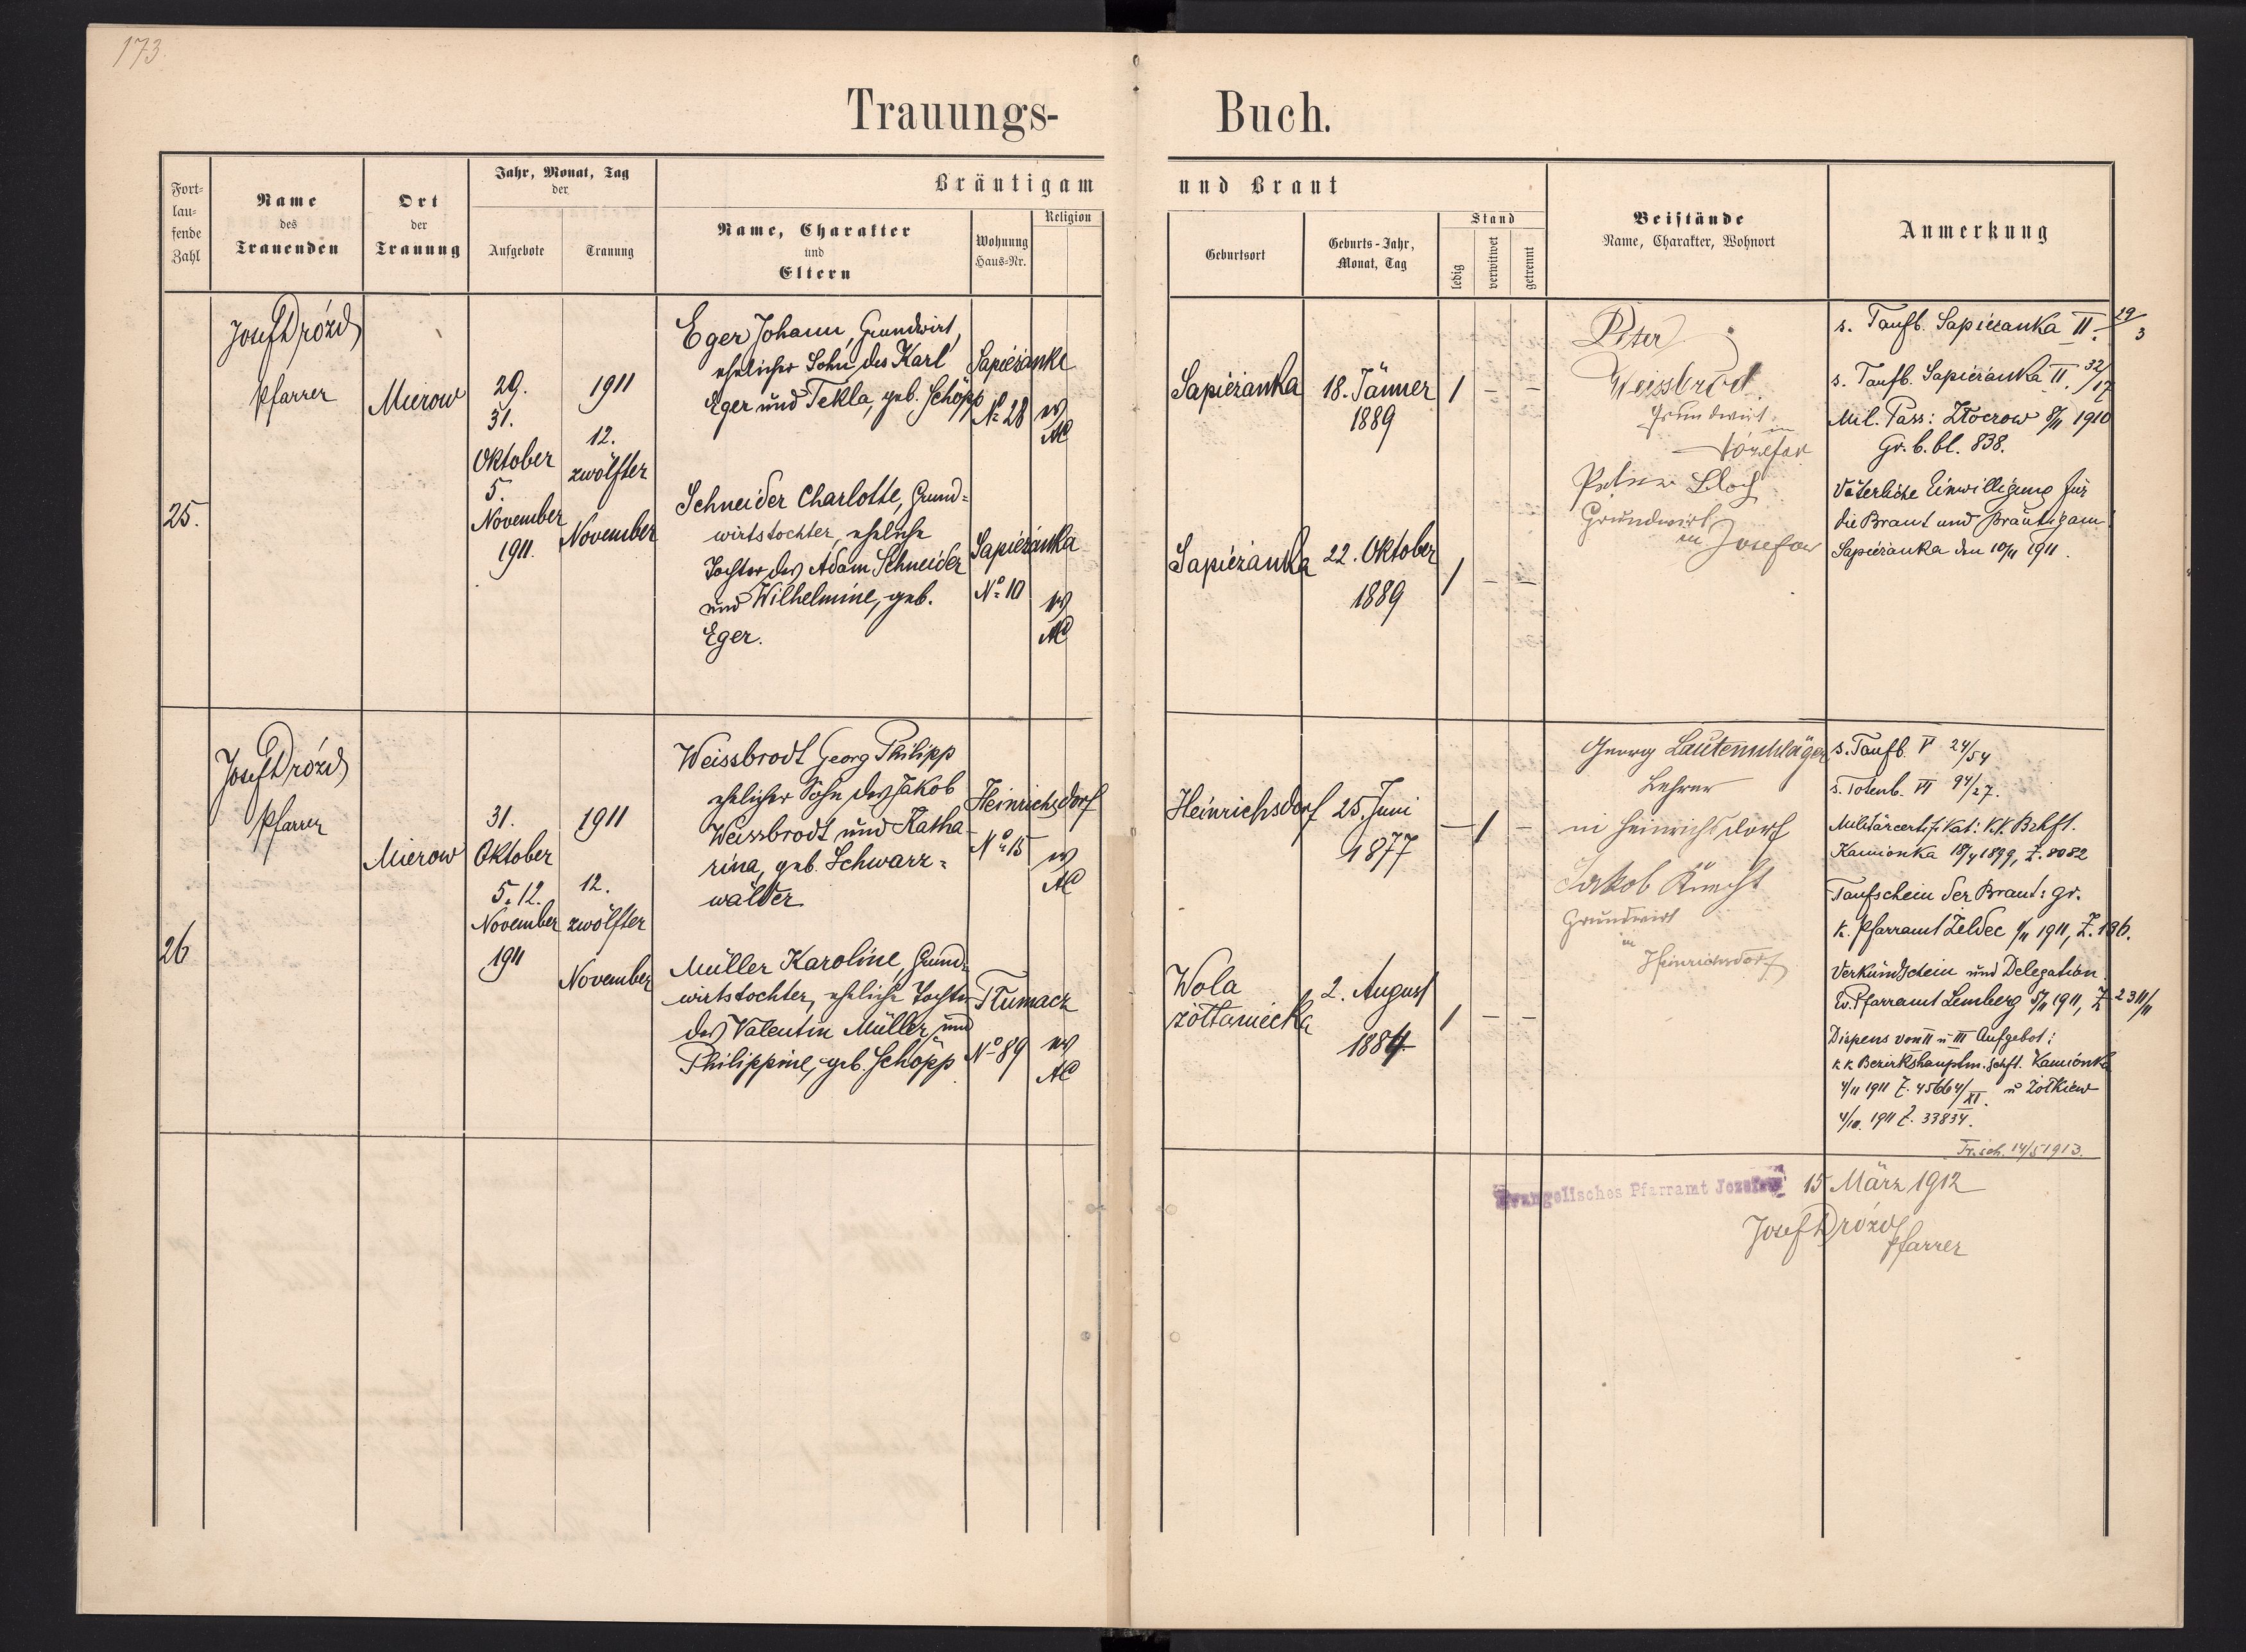 173
Trauungs-Buch.
Fort-
lau-
fende
Zahl
Name
des
Trauenden
Ort
der
Trauung
Jahr, Monat, Tag
der
Aufgebote
Trauung
Bräutigam und Braut
Name, Charakter
und
Eltern
Wohnung
Haus-Nr.
Religion
Geburtsort
Geburts-Jahr,
Monat, Tag
Stand
ledig
verwitwet
getrennt
Beistände
Name, Charakter, Wohnort
Anmerkung
25.
Josef Drózd
Pfarrer
Mierow
29.
31.
Oktober
5.
November
1911.
1911
12.
zwölfter
November
Eger Johann, Grundwirt,
ehelicher Sohn des Karl
Eger und Tekla, geb. Schöpp
Sapieżanka
No 28
ev
AC
Sapieżanka
18. Jänner
1889
1 – –
Schneider Charlotte, Grund=
wirtstochter, eheliche
Tochter des Adam Schneider
und Wilhelmine, geb.
Eger.
Sapieżanka
No 10
ev
AC
Sapieżanka
22. Oktober
1889
1 – –
Peter
Weissbrod
Grundwirt
in
Józefow
Bloch
Grundwirt
in Josefow
s. Taufb. Sapieżanka II. 19/3
s. Taufb. Sapieżanka II. 32/17
Mil. Pass: Złoczow 8/11 1910
Gr. b. bl. 838.
Väterliche Einwilligung für
die Braut und Bräutigam
Sapieżanka den 10/11 1911.
26
Josef Drózd
Pfarrer
Mierow
31.
Oktober
5. 12.
November
1911
1911
12.
zwölfter
November
Weissbrodt Georg Philipp
ehelicher Sohn des Jakob
Weissbrodt und Katha-
rina, geb. Schwarz=
wälder
Heinrichsdorf
No 15
ev
AC
Heinrichsdorf
25. Juni
1877
– 1 –
Müller Karoline, Grund=
wirtstochter, eheliche Tochter
des Valentin Müller und
Philippine, geb. Schöpp
Tłumacz
No 89
ev
AC
Wola
żółtaniecka
2. August
1884
1 – –
Georg Lautenschläger
Lehrer
in Heinrichsdorf
Jakob Knecht
Grundwirt
in
Heinrichsdorf
s. Taufb. V 24/54
s. Totenb. VI 94/27.
Militärcertifikat: K.K. Bzhft.
Kamionka 18/4 1899, Z. 8082
Taufschein der Braut: gr.
k. Pfarramt Zeldec 1/11 1911, Z. 186.
Verkündschein und Delegation
Ev. Pfarramt Lemberg 5/11 1911, Z 2311/11
Dispens von II u III Aufgebot:
k k Bezirkshauptm.schft. Kamionka
4/11 1911 Z. 45664/XI. u Żółkiew
4/10. 1911 Z. 33834.
Tr. sch. 14/5 1913.
Evangelisches Pfarramt Jozefow
15 März 1912
Josef Drózd
Pfarrer